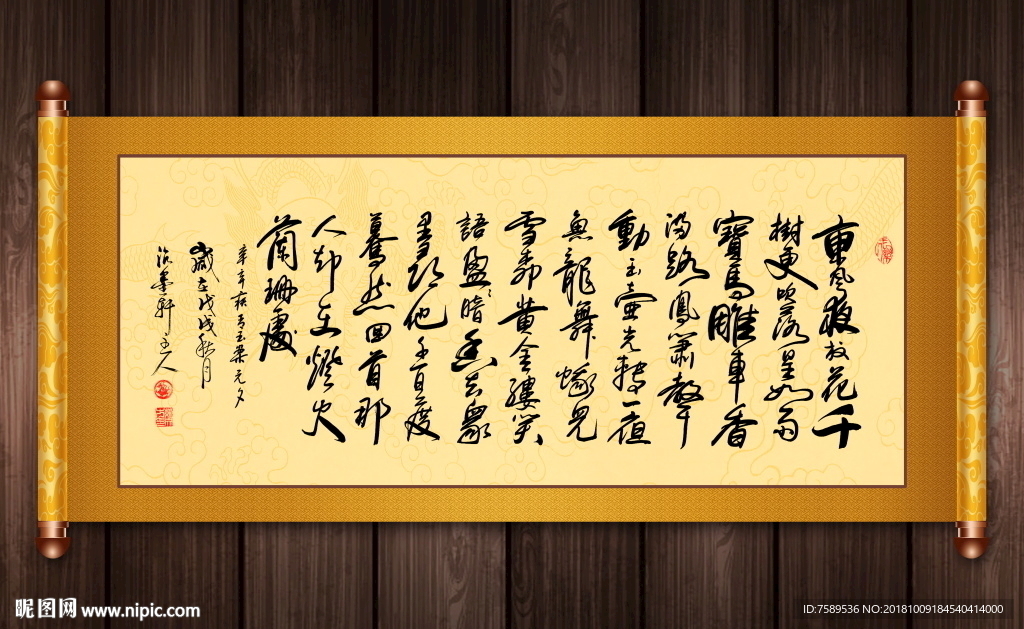 東風夜放花千
樹更吹落星如雨
寶馬雕車香
滿路鳳簫聲
動玉壺光轉一夜
魚龍舞蛾兒
雪柳黄金縷笑
語盈盈暗香去眾
里尋他千百度
驀然回首那
人却在燈火
蘭珊處
辛弃疾青玉案元夕
歲在戊戌秋月
墨軒主人
昵图网 www.nipic.com
ID:7589536 NO:20181009184540414000